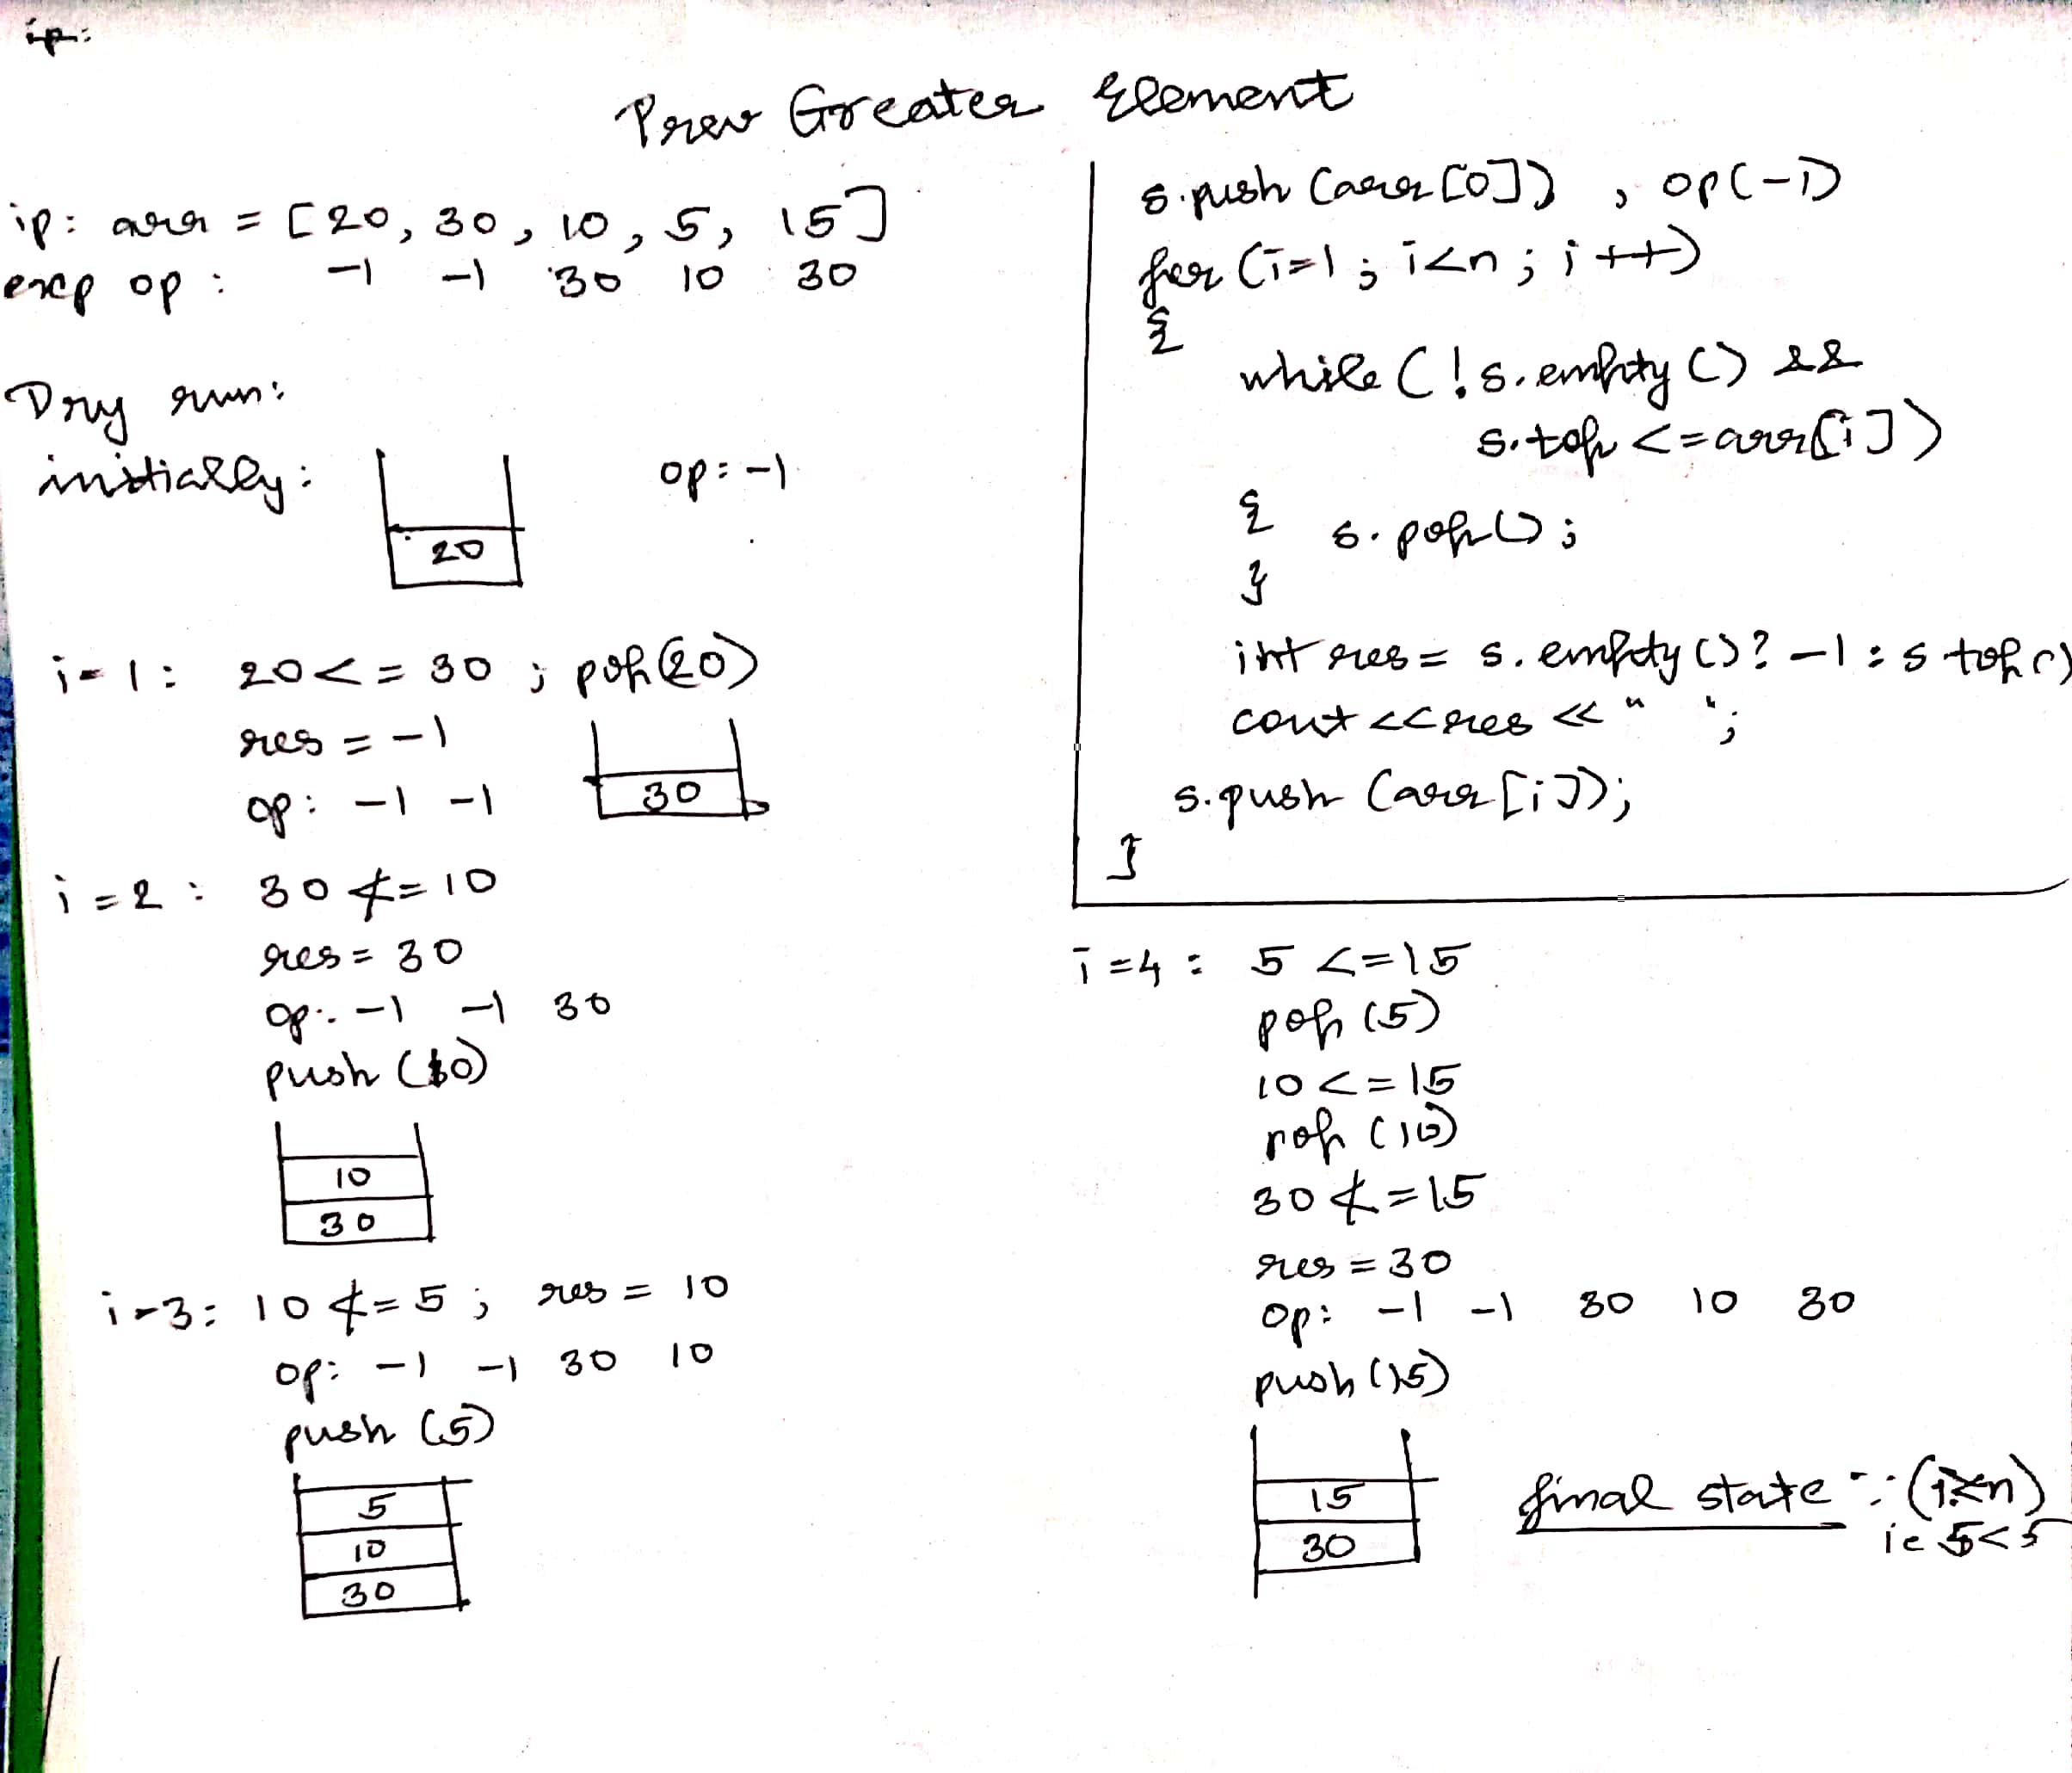 ip:
Prev Greater Element
ip: arr = [20, 30, 10, 5, 15]
exp op: -1 -1 30 10 30
Dry run:
initially:
op: -1
20
i=1: 20 <= 30 ; pop(20)
res = -1
op: -1 -1
30
i=2: 30 ≮= 10
res = 30
op: -1 -1 30
push (10)
10
30
i=3: 10 ≮= 5 ; res = 10
op: -1 -1 30 10
push (5)
5
10
30
s.push (arr[0]) , op(-1)
for (i=1 ; i<n ; i++)
{
while (!s.empty () &&
s.top <= arr[i])
{ s.pop();
}
int res = s.empty ()? -1 : s top()
cout << res << " ";
s.push (arr[i]);
}
i=4: 5 <= 15
pop (5)
10 <= 15
pop (10)
30 ≮= 15
res = 30
op: -1 -1 30 10 30
push (15)
15
30
final state ∵ (i≮n)
ie 5<5